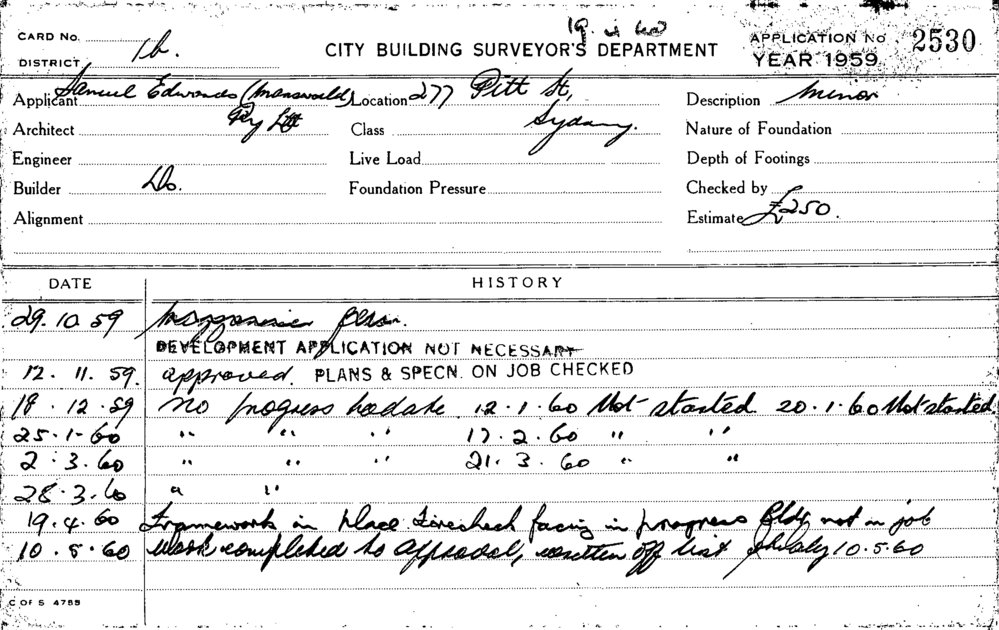 19. 4 60
CARD No. 1b. CITY BUILDING SURVEYOR'S DEPARTMENT APPLICATION No 2530
DISTRICT YEAR 1959
Applicant Samuel Edwards (Menswear) Location 277 Pitt St, Description Minor
Architect Pty Ltd Class Sydney. Nature of Foundation
Engineer Live Load Depth of Footings
Builder Do. Foundation Pressure Checked by
Alignment Estimate £250.
DATE HISTORY
29.10.59 Mezzanine floor.
DEVELOPMENT APPLICATION NOT NECESSARY
12. 11. 59. approved. PLANS & SPECN. ON JOB CHECKED
18. 12. 59 No progress to date 12.1.60 Not started 20.1.60 Not started
25.1.60 " " " 17.2.60 " "
2.3.60 " " " 21.3.60 " "
28.3.60 " "
19.4.60 Framework in place. Firecheck facing in progress Bldg not on job
10.5.60 Work completed to approval, written off list 10.5.60
C OF S 4755